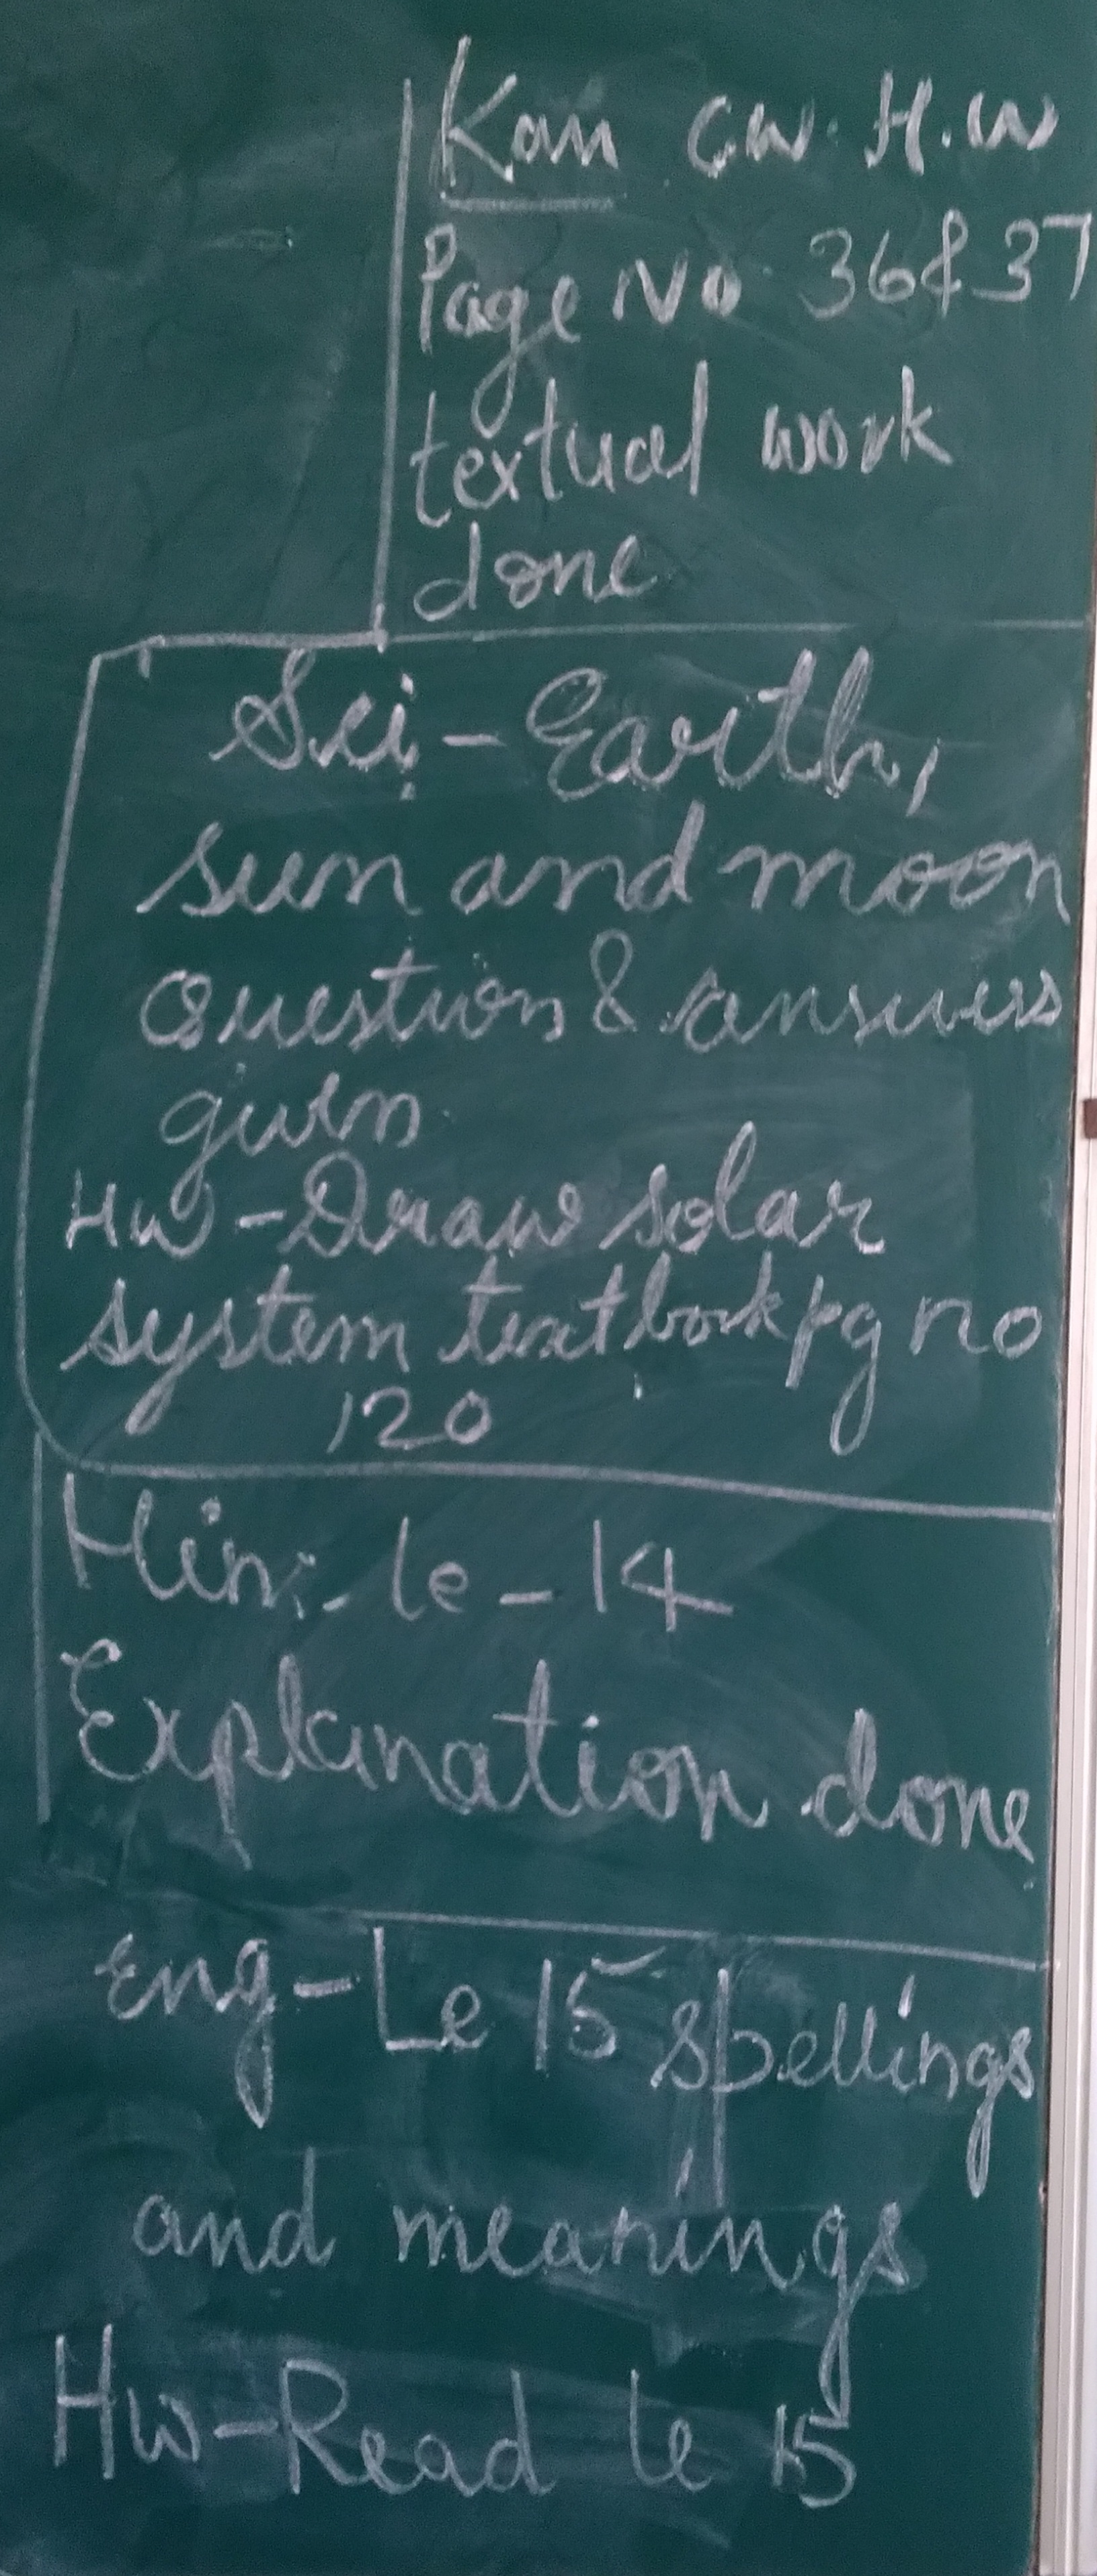 Kan CW. H.W
Page No 36 & 37
textual work
done
Sci - Earth,
sun and moon
Question & answers
given.
HW - Draw solar
system textbook pg no
120
Hin:- le - 14
Explanation done
Eng - Le 15 spellings
and meanings
HW - Read le 15